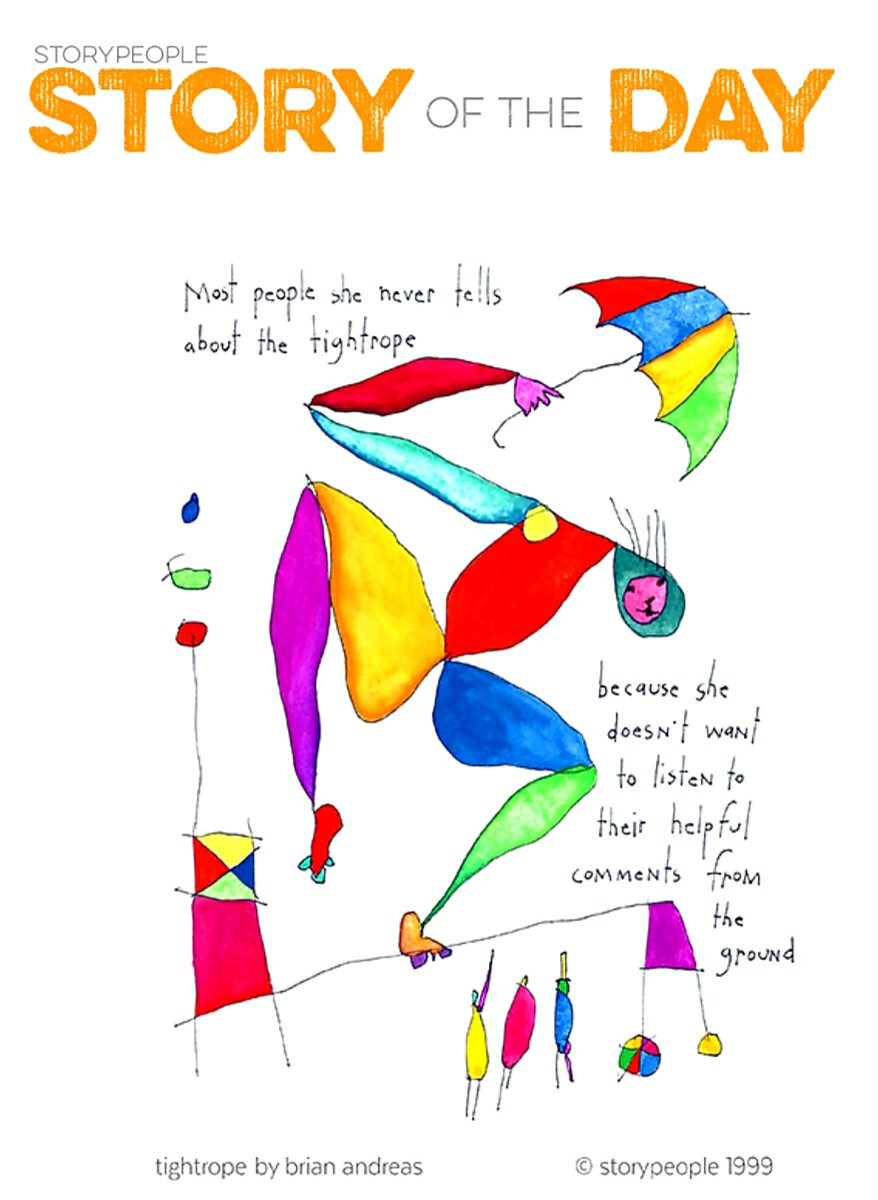 STORYPEOPLE
STORY OF THE DAY
Most people she never tells
about the tightrope
because she
doesn't want
to listen to
their helpful
comments from
the
ground
tightrope by brian andreas
© storypeople 1999